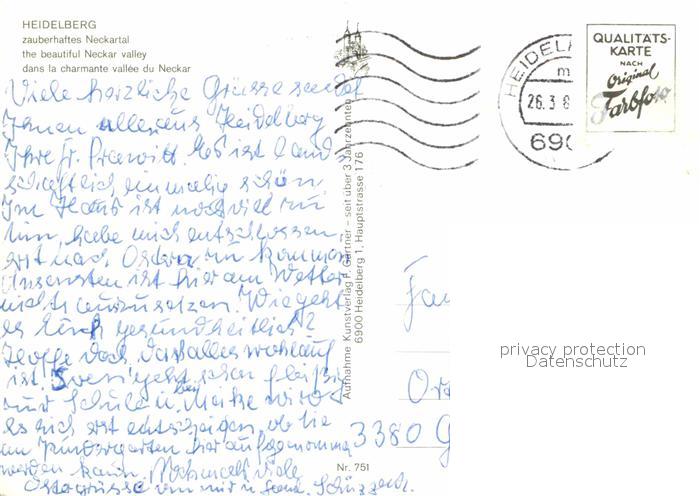 HEIDELBERG
zauberhaftes Neckartal
the beautiful Neckar valley
dans la charmante vallée du Neckar
Viele herzliche Grüsse sendet
Ihnen allen aus Heidelberg
Ihre Fr. Es ist land
schaftlich einmalig schön.
Im Haus ist noch viel zu
tun, habe mich entschlossen,
erst nach Ostern zu kommen.
Ansonsten ist hier am Wetter
nichts auszusetzen. Wie geht
es Euch gesundheitlich?
Hoffe doch, dass alles wohlauf
ist. geht schon fleißig
zur Schule u. bei Meike wird
es sich erst entscheiden, ob sie
im Kindergarten hier aufgenommen
werden kann. Nochmals viele
Ostergrüsse von mir u. Fam.
Aufnahme Kunstverlag F. Gärtner – seit über 3 Jahrzehnten
6900 Heidelberg 1, Hauptstrasse 176
Nr. 751
HEIDEL
26.3.8
690
QUALITÄTS-
KARTE
NACH
Original
Farbfoto
Fa
3380 G
privacy protection
Datenschutz